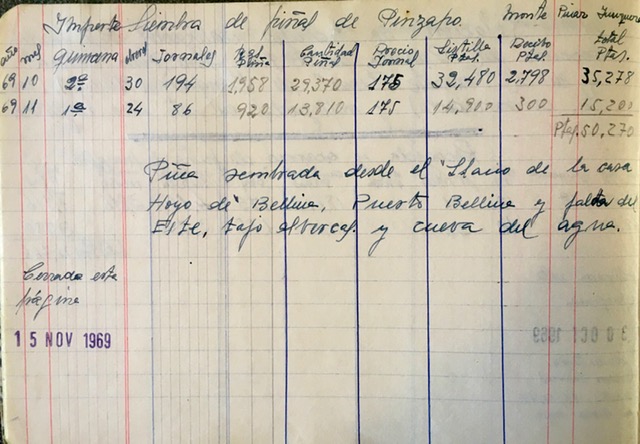 Importe Siembra de piñal de Pinzapo. Monte Pinar
año mes quincena obreros Jornales Cantidad Piñal Precio Jornal Ptas. Recibo Ptas. total Ptas.
69 10 2ª 30 194 1,958 29,370 175 32,480 2.798 35,278
69 11 1ª 24 86 920 13,810 175 14,900 300 15,201
Ptas. 50,270
Piña sembrada desde el Llano de la casa
Hoyo de Bellina, Puerto Bellina y falda del
Este, tajo albercas y cueva del agua.
Cerrada esta
página
15 NOV 1969
30 OCT 1969